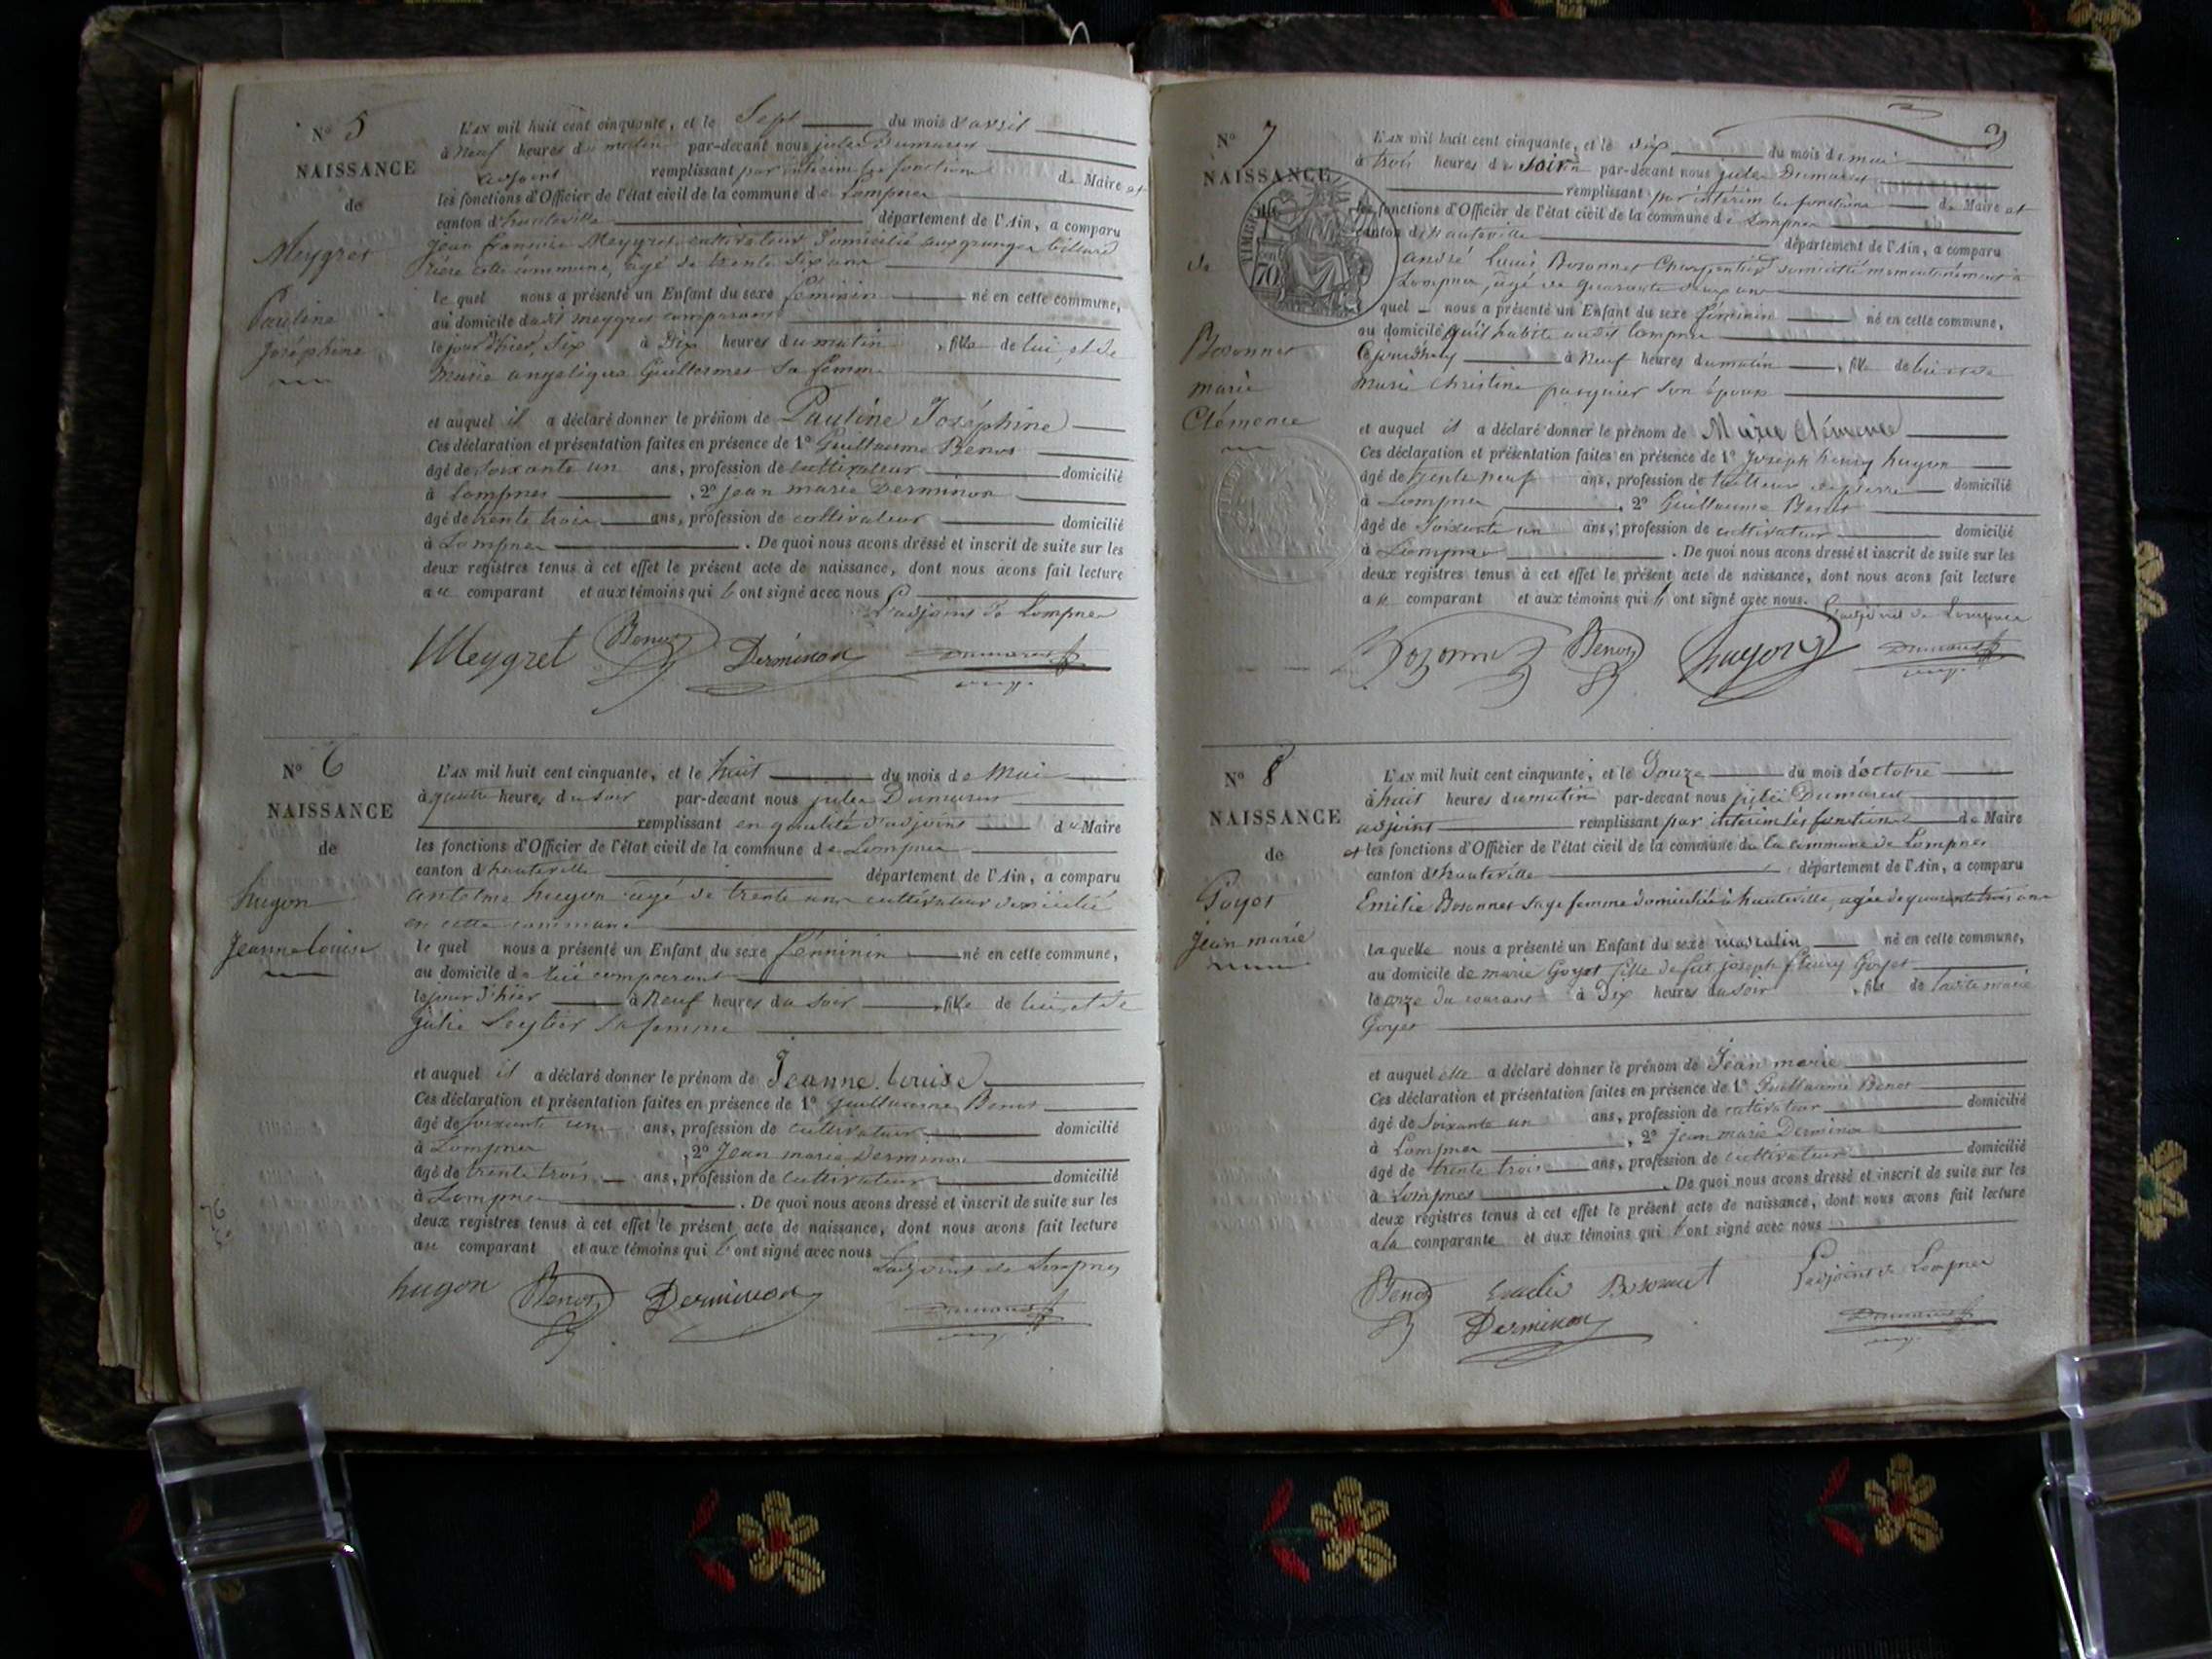 Nº 5
NAISSANCE
de
Meygret
Pauline
Joséphine
L'AN mil huit cent cinquante, et le Sept du mois d'avril
à Neuf heures du matin par-devant nous jules Dumarest
adjoint remplissant par interim les fonctions de Maire et
les fonctions d'Officier de l'état civil de la commune de Lompnes
canton d'hauteville département de l'Ain, a comparu
Jean françois Meygret cultivateur, domicilié aux granges
rière cette commune, âgé de trente six ans
le quel nous a présenté un Enfant du sexe féminin né en cette commune,
au domicile dudit meygret comparant
le jour d'hier, six à Dix heures du matin, fille de lui et de
Marie angélique Guillermet sa femme
et auquel il a déclaré donner le prénom de Pauline Joséphine
Ces déclaration et présentation faites en présence de 1º Guillaume Benot
âgé de soixante un ans, profession de cultivateur domicilié
à Lompnes, 2º jean marie Derminon
âgé de trente trois ans, profession de cultivateur domicilié
à Lompnes. De quoi nous avons dressé et inscrit de suite sur les
deux registres tenus à cet effet le présent acte de naissance, dont nous avons fait lecture
au comparant et aux témoins qui l'ont signé avec nous
L'adjoint de Lompnes
Meygret Benot Derminon Dumarest
Nº 6
NAISSANCE
de
hugon
Jeanne Louise
L'AN mil huit cent cinquante, et le huit du mois de Mai
à quatre heures du soir par-devant nous jules Dumarest
remplissant en qualité d'adjoint du Maire
les fonctions d'Officier de l'état civil de la commune de Lompnes
canton d'hauteville département de l'Ain, a comparu
antelme hugon âgé de trente ans cultivateur domicilié
en cette commune
le quel nous a présenté un Enfant du sexe féminin né en cette commune,
au domicile de lui comparant
le jour d'hier à Neuf heures du soir, fille de lui et de
julie sa femme
et auquel il a déclaré donner le prénom de Jeanne Louise
Ces déclaration et présentation faites en présence de 1º Guillaume Benot
âgé de soixante un ans, profession de cultivateur domicilié
à Lompnes, 2º Jean marie Derminon
âgé de trente trois ans, profession de cultivateur domicilié
à Lompnes. De quoi nous avons dressé et inscrit de suite sur les
deux registres tenus à cet effet le présent acte de naissance, dont nous avons fait lecture
au comparant et aux témoins qui l'ont signé avec nous
L'adjoint de Lompnes
hugon Benot Derminon Dumarest
3
Nº 7
NAISSANCE
de
Bozonnet
marie
Clémence
TIMBRE
70
L'AN mil huit cent cinquante, et le dix du mois de mai
à trois heures du soir par-devant nous jules Dumarest
remplissant par intérim les fonctions de Maire et
les fonctions d'Officier de l'état civil de la commune de Lompnes
canton d'hauteville département de l'Ain, a comparu
andré Louis Bozonnet Charpentier domicilié momentanément à
Lompnes, âgé de quarante deux ans
quel nous a présenté un Enfant du sexe féminin né en cette commune,
au domicile qu'il habite audit Lompnes
Cejourdhuy à Neuf heures du matin, fille de lui et de
Marie Christine pasquier son épouse
et auquel il a déclaré donner le prénom de Marie Clémence
Ces déclaration et présentation faites en présence de 1º Joseph henry hugon
âgé de trente neuf ans, profession de tailleur de pierre domicilié
à Lompnes, 2º Guillaume Benot
âgé de soixante un ans, profession de cultivateur domicilié
à Lompnes. De quoi nous avons dressé et inscrit de suite sur les
deux registres tenus à cet effet le présent acte de naissance, dont nous avons fait lecture
au comparant et aux témoins qui l'ont signé avec nous.
L'adjoint de Lompnes
Bozonnet Benot hugon Dumarest
Nº 8
NAISSANCE
de
Goyet
Jean marie
L'AN mil huit cent cinquante, et le Douze du mois d'octobre
à huit heures du matin par-devant nous jules Dumarest
adjoint remplissant par intérim les fonctions de Maire
et les fonctions d'Officier de l'état civil de la commune de la commune de Lompnes
canton d'hauteville département de l'Ain, a comparu
Emilie Bozonnet sage femme domiciliée à hauteville, agée de quarante trois ans
la quelle nous a présenté un Enfant du sexe masculin né en cette commune,
au domicile de marie Goyet fille de fut joseph fleury Goyet
le onze du courant à Dix heures du soir, fils de ladite marie
Goyet
et auquel elle a déclaré donner le prénom de Jean marie
Ces déclaration et présentation faites en présence de 1º Guillaume Benot
âgé de soixante un ans, profession de cultivateur domicilié
à Lompnes, 2º Jean marie Derminon
âgé de trente trois ans, profession de cultivateur domicilié
à Lompnes. De quoi nous avons dressé et inscrit de suite sur les
deux registres tenus à cet effet le présent acte de naissance, dont nous avons fait lecture
a la comparante et aux témoins qui l'ont signé avec nous
Benot Bozonnet L'adjoint de Lompnes
Derminon Dumarest